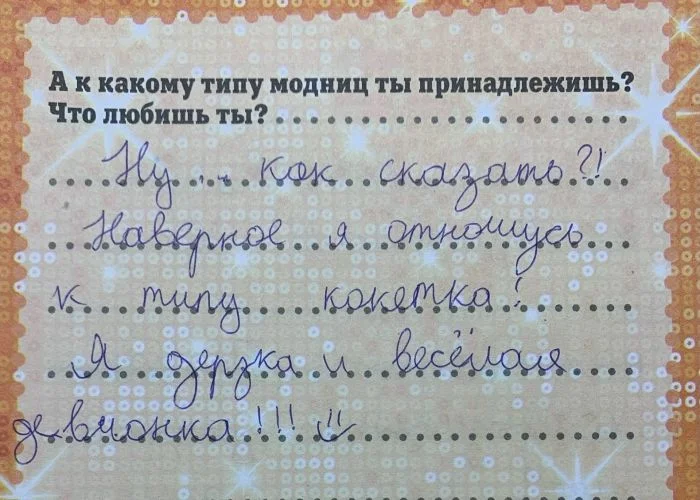 А к какому типу модниц ты принадлежишь?
Что любишь ты? . . . . . . . . . . . . . . . . . . . . . . . .
Ну ... как сказать?!
Наверное я отношусь
к типу кокетка!
Я дерзка и весёлая
девчонка!!! :)